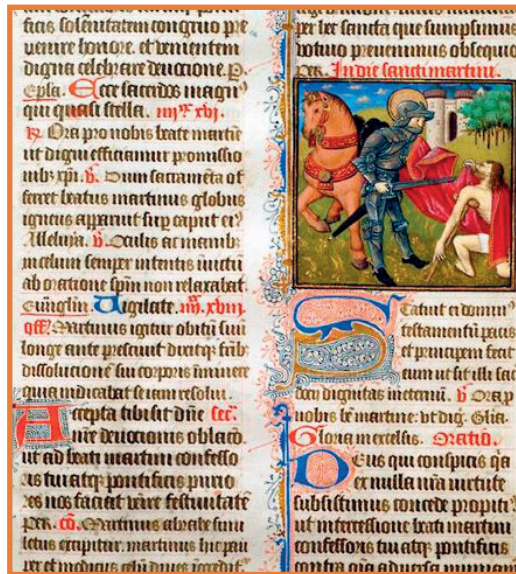 ficis solēnitatem congruo pre
uenire honore. et uenientem
digna celebrare deuocione. P
Epła. Ecce sacerdos magn⁹
qui quasi stella.
Ora pro nobis beate martī
ut digni efficiamur promissio
Dum sacramēta of
ferret beatus martinus globus
igneus apparuit sup caput ei⁹
Alleluya. Oculis ac manib⁹
in celum semper intentis inuictū
ab oratione spm̄ non relaxabat.
Uigilate.
Martinus igitur obitū suū
longe ante presciuit dixitq₃ frīb⁹
dissolucionē sui corporis īminere
quia iudicabat se iam resolui.
Accepta tibi sit dn̄e
nr̄e deuocionis oblacō.
ut ad beati martini confesso
ris tui atq₃ pontificis purio
res nos faciat uētur̄e festiuitatē
Per. cō. Martinus abrahe sinu
letus excipitur. martinus hic pau
per et modicus celū diues īgredit̄
per hec sancta que sumpsimus
uotiuo preuenimus obsequio
per. In die sancti martini.
Statuit ei domin⁹
testamentū pacis
et principem fecit
eum ut sit illi sac
docij dignitas in eternū. Ora p
nobis be martine. ut dig. Glia.
Gloria in excelsis. Oratio.
Deus qui conspicis q̄a
ex nulla nr̄a uirtute
subsistimus concede propiti⁹
ut intercessione beati martini
confessoris tui atq₃ pontificis
contra oīa aduersa muniam